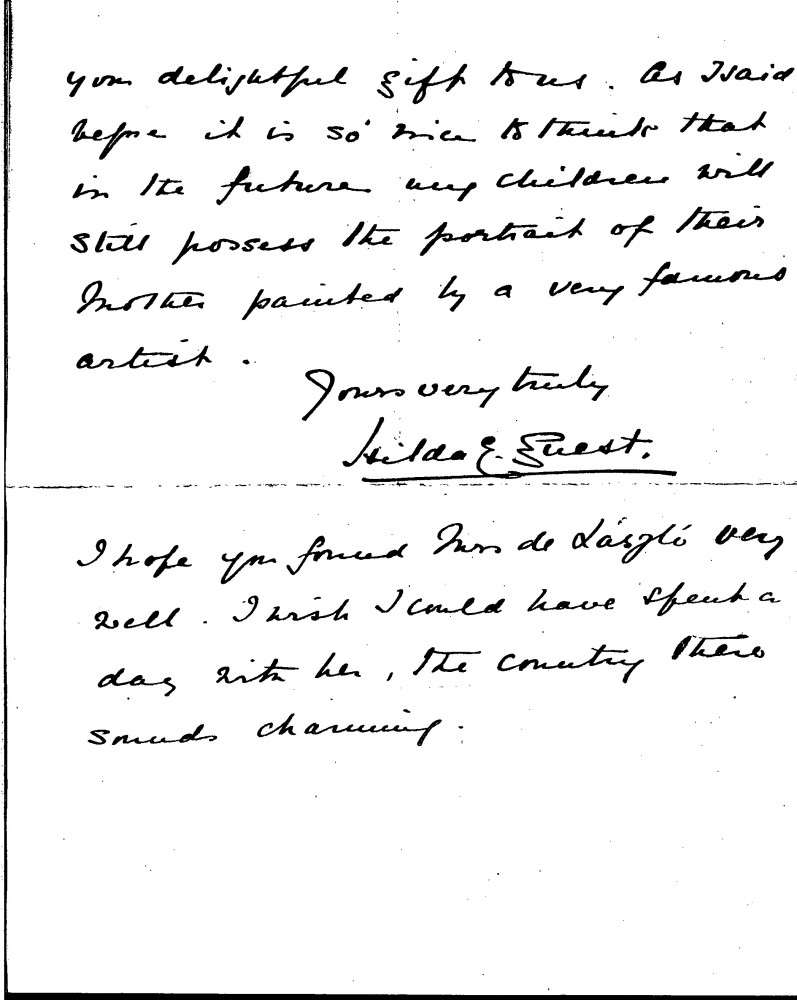 your delightful gift to us. As I said
before it is so nice to think that
in the future my children will
still possess the portrait of their
Mother painted by a very famous
artist.
Yours very truly
Hilda E. Guest.
I hope you found Mrs de László very
well. I wish I could have spent a
day with her, the country there
sounds charming.